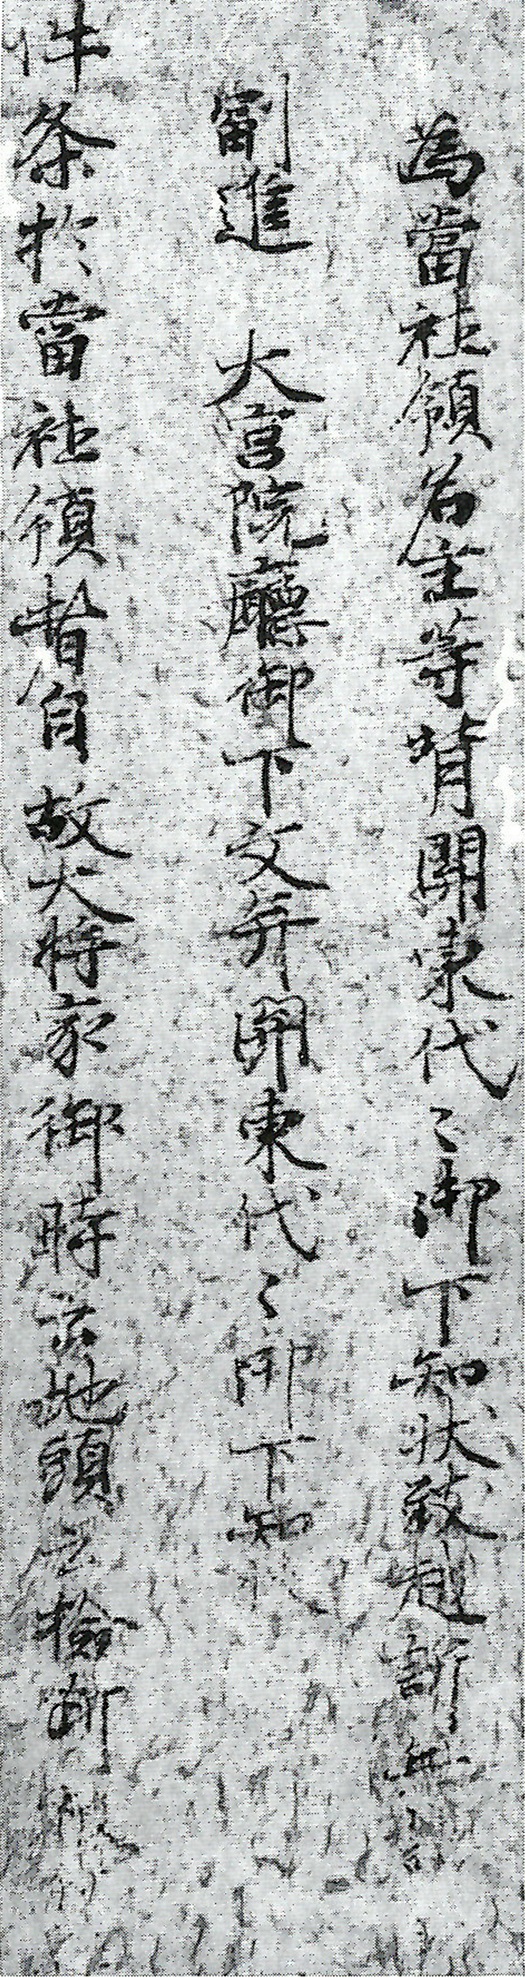 為當社領名主等背関東代〻御下知状致越訴無
副進　大宮院廳御下文并関東代〻御下知状
件条於當社領者自故大将家御時云地頭云検断